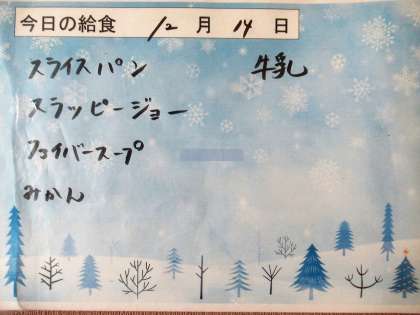 今日の給食 12月14日
スライスパン 牛乳
スラッピージョー
ファイバースープ
みかん